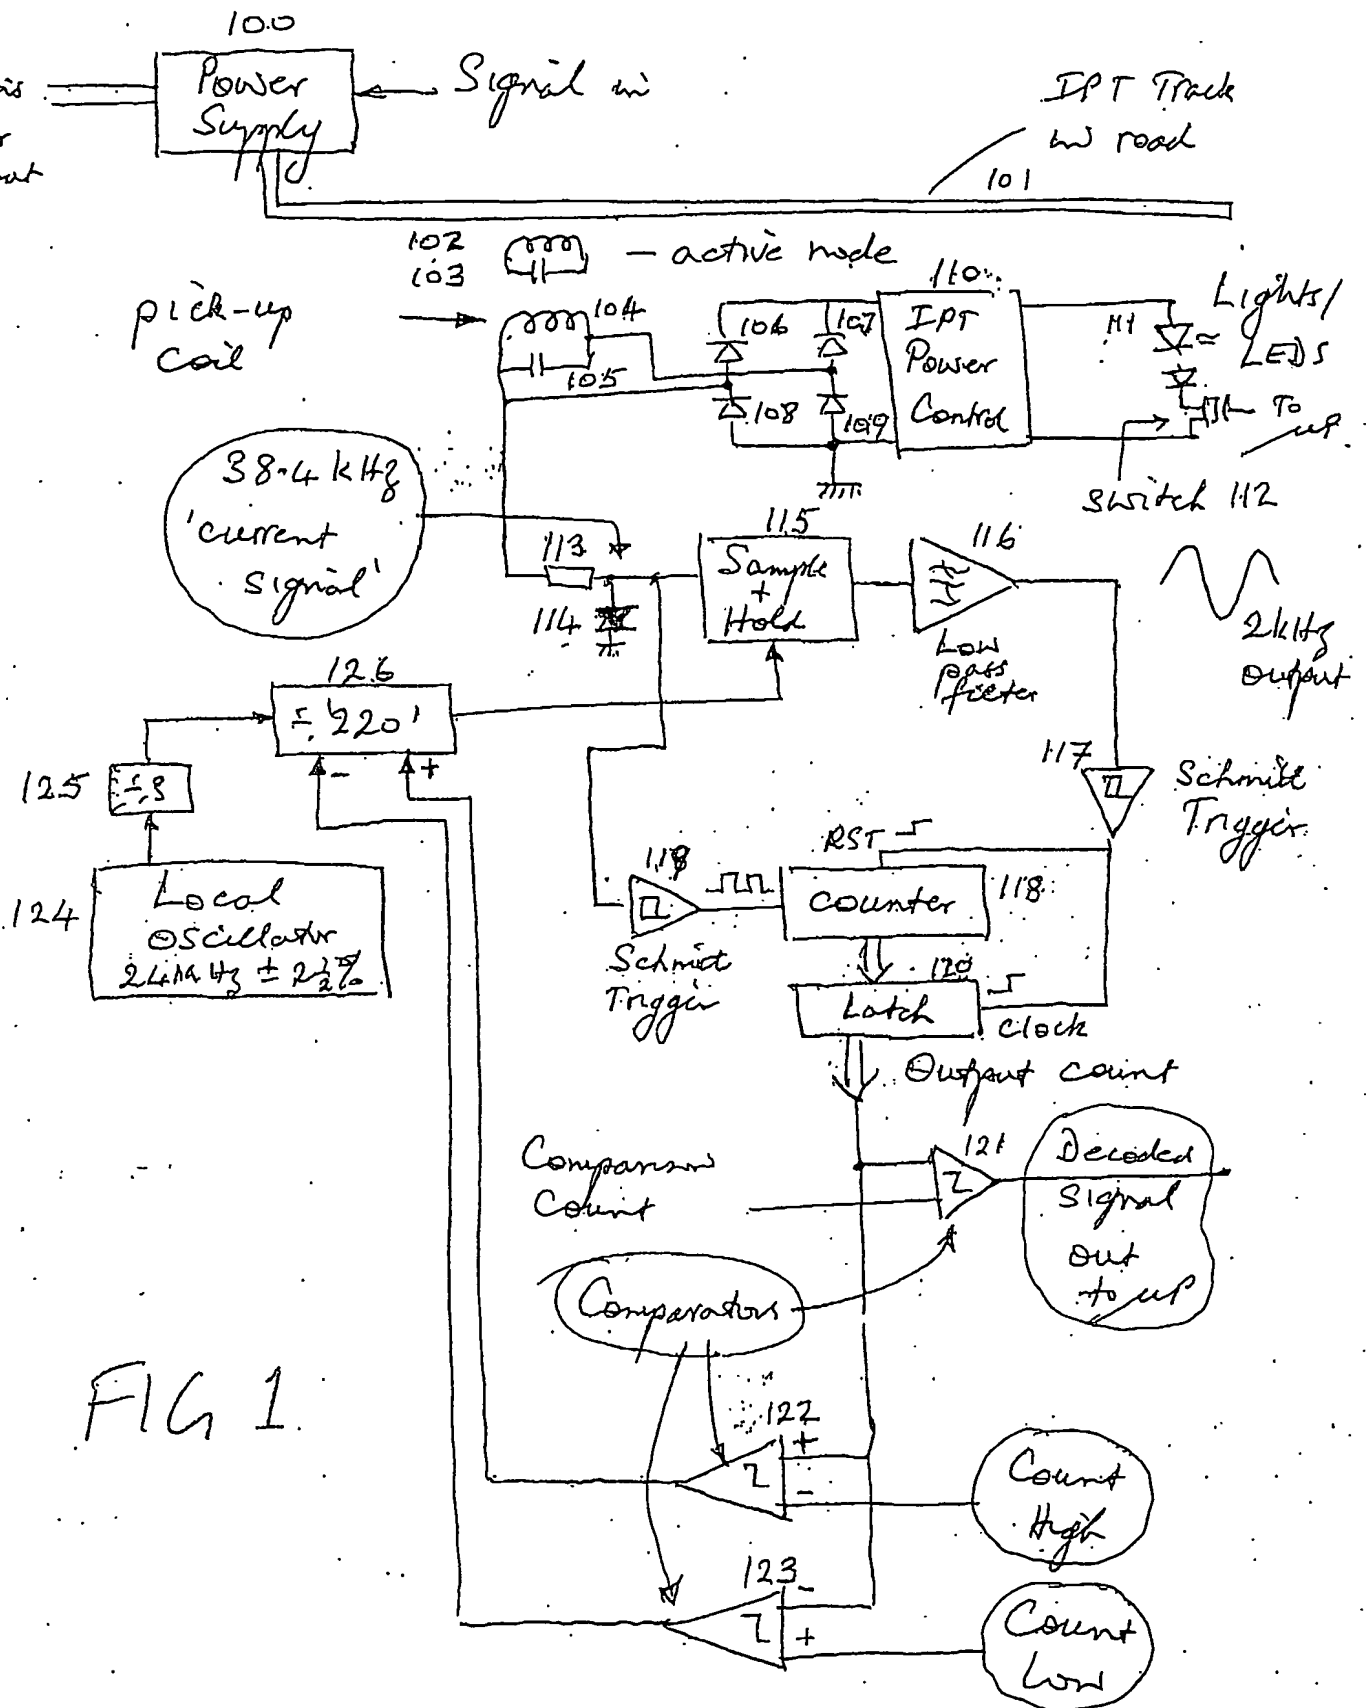 100
Power
Supply
Signal in
IPT Track
in road
101
102
103
- active node
pick-up
coil
104
105
106
107
108
109
110
IPT
Power
Control
111
Lights/
LEDS
To
uP
switch 112
38.4 kHz
'current
signal'
113
114
115
Sample
+
Hold
116
Low
pass
filter
2kHz
output
126
÷ '220'
- +
125
124
Local
Oscillator
117
Schmitt
Trigger
RST
119
Counter
118
Schmitt
Trigger
120
Latch
Clock
Output count
Comparison
Count
121
Decoded
Signal
Out
to uP
Comparators
FIG 1
122
+
-
Count
High
123
-
+
Count
Low